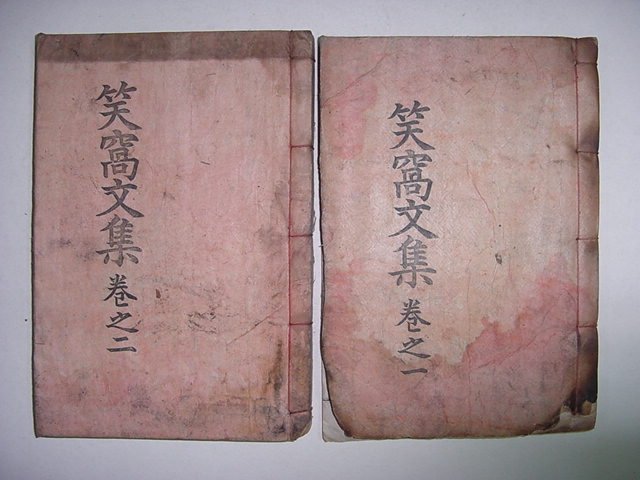 笑窩文集 卷之二
笑窩文集 卷之一